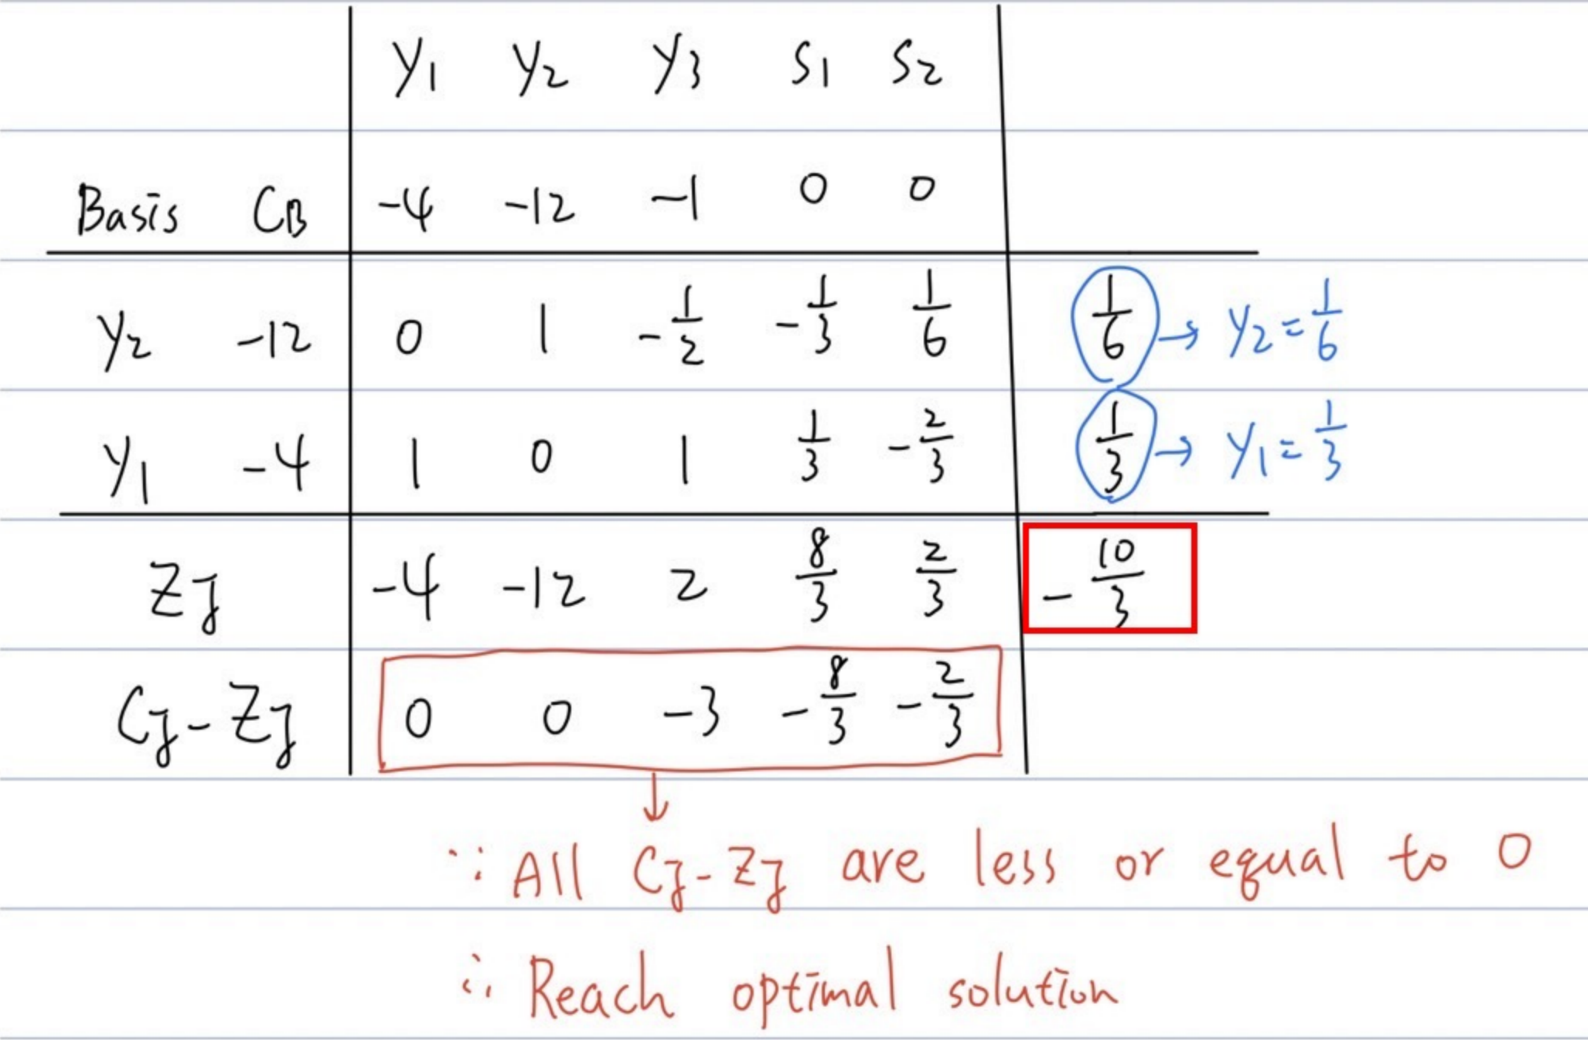 y₁ y₂ y₃ s₁ s₂
Basis CB -4 -12 -1 0 0
y₂ -12 0 1 -1/2 -1/3 1/6 1/6 → y₂ = 1/6
y₁ -4 1 0 1 1/3 -2/3 1/3 → y₁ = 1/3
Zj -4 -12 2 8/3 2/3 -10/3
Cj-Zj 0 0 -3 -8/3 -2/3
↓
∵ All Cj-Zj are less or equal to 0
∴ Reach optimal solution